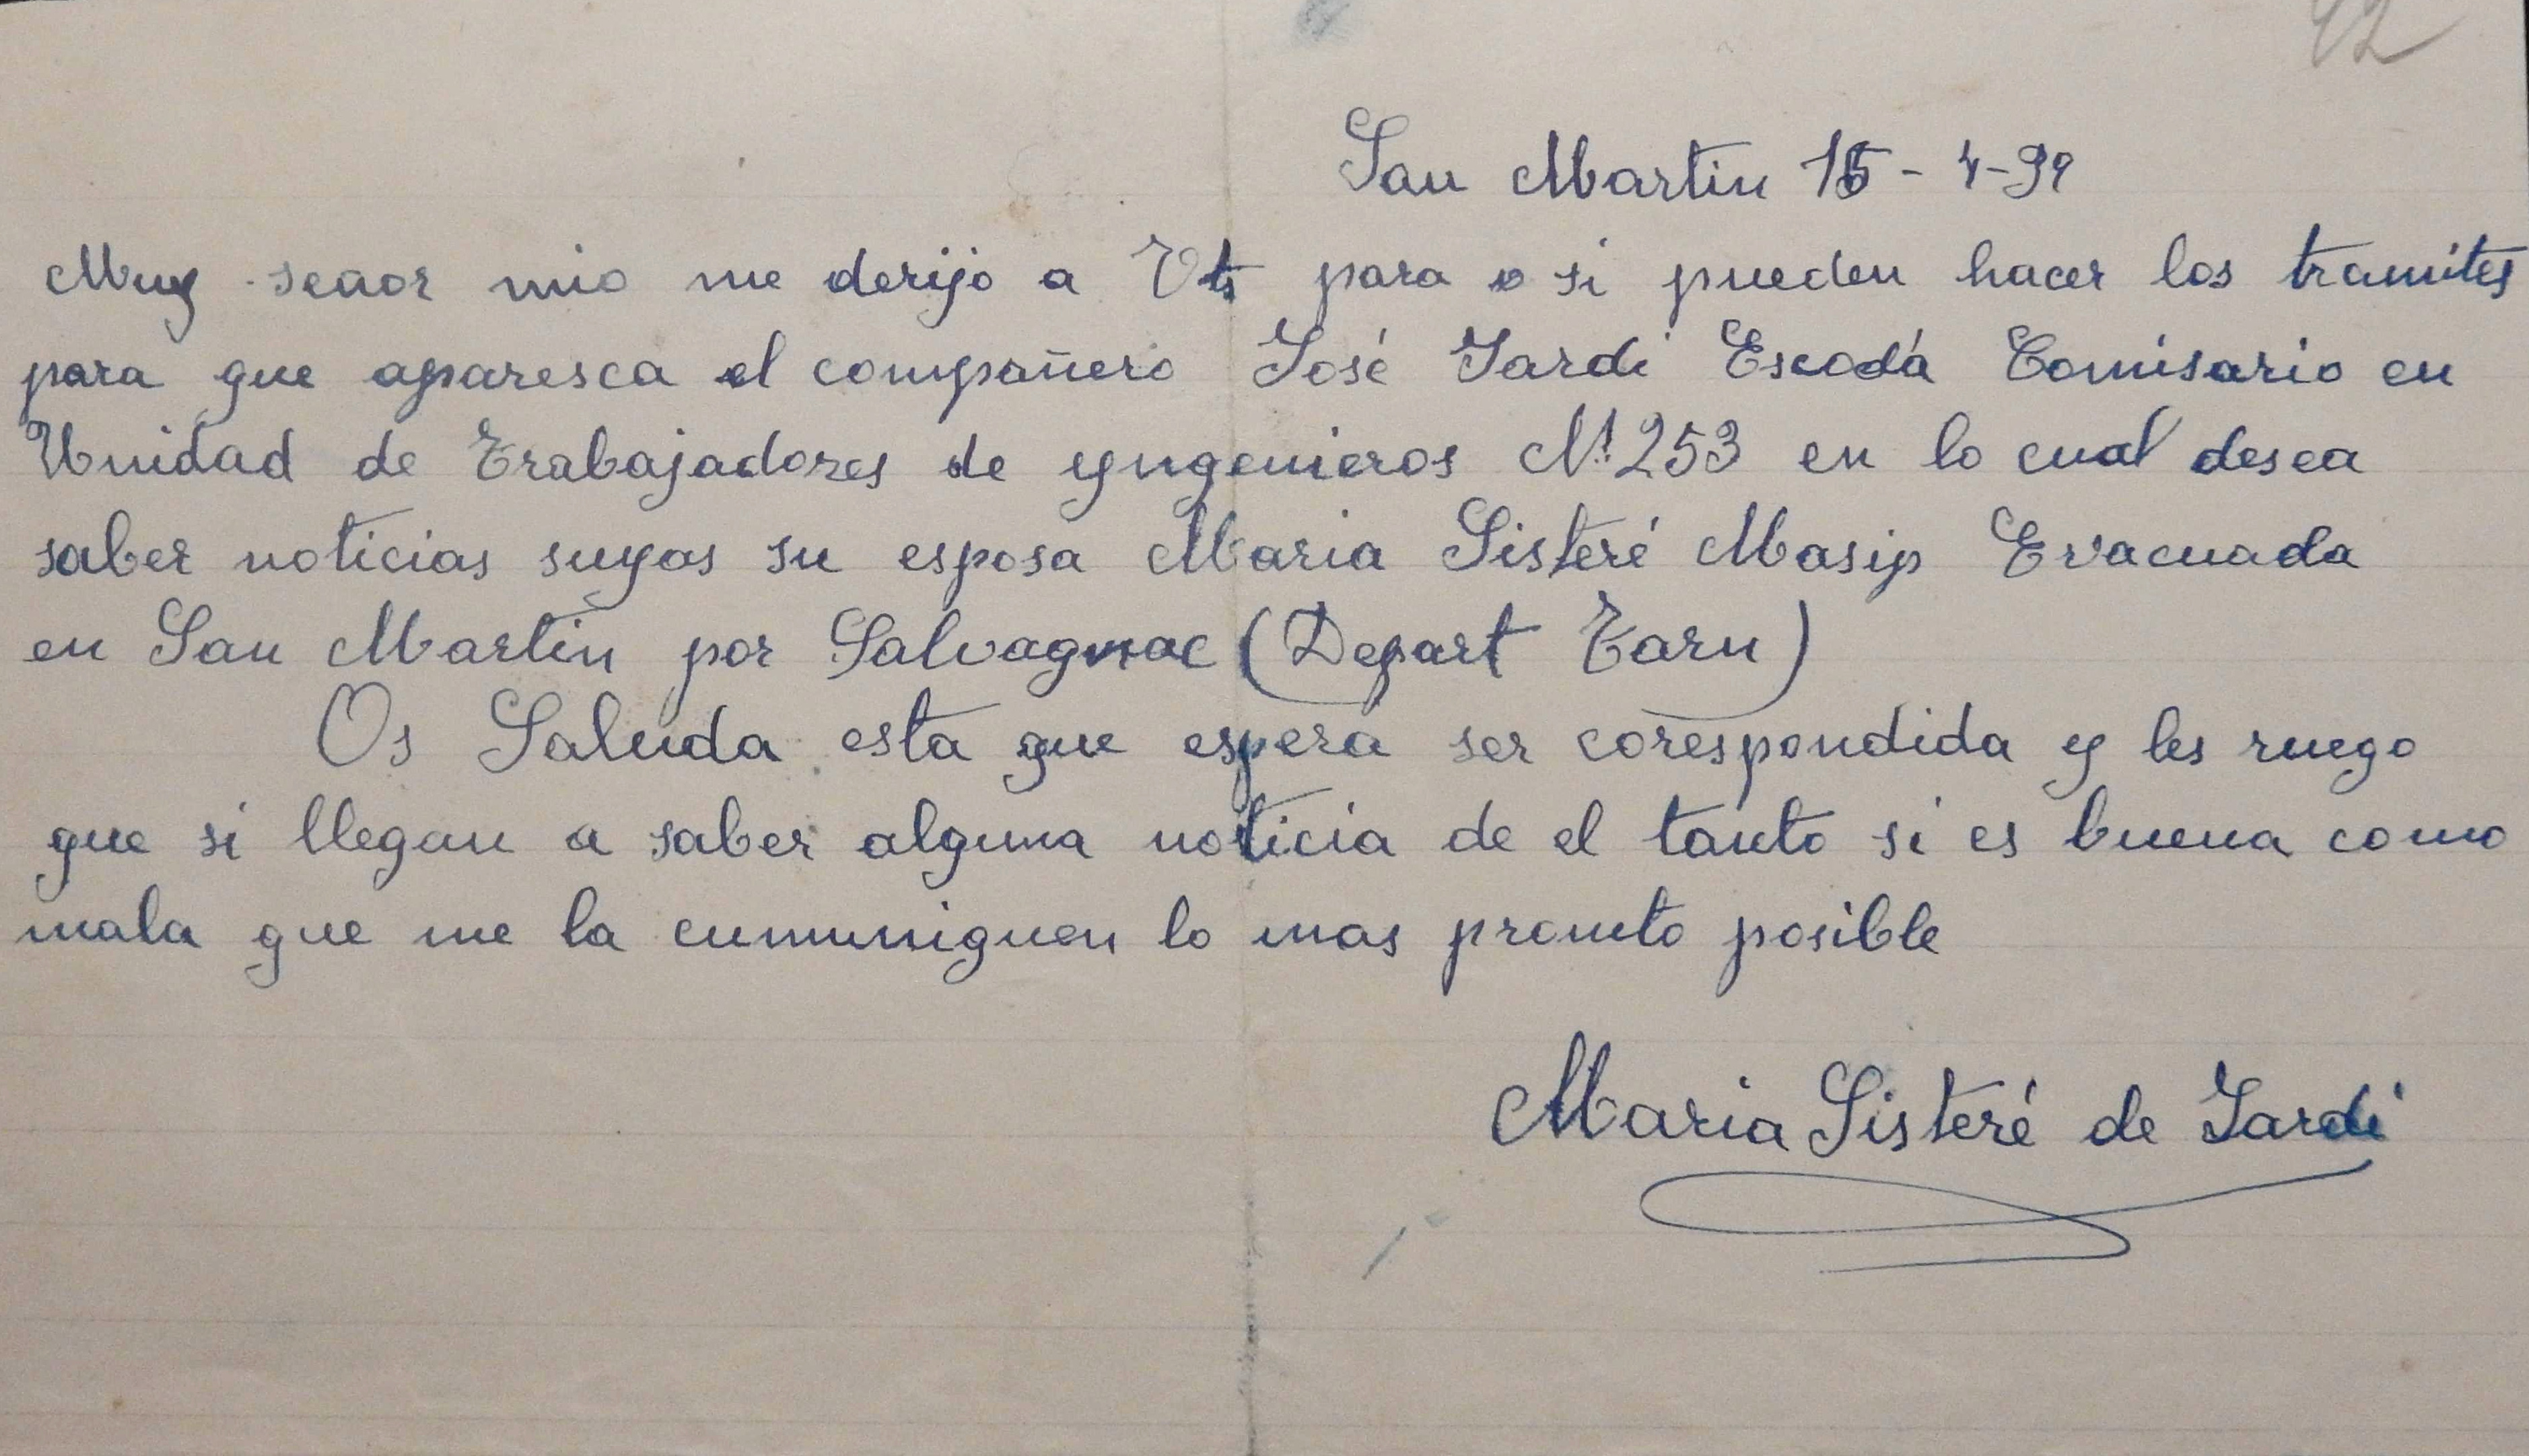 42
San Martin 15-4-39
Muy senor mio me derijo a Vts para o si pueden hacer los tramites
para que aparesca el compañero José Jardi Escodá Comisario en
Unidad de Trabajadores de yngenieros Nº 253 en lo cual desea
saber noticias suyas su esposa Maria Sisteré Masip Evacuada
en San Martin por Salvagnac (Depart Tarn)
Os Saluda esta que espera ser corespondida y les ruego
que si llegan a saber alguna noticia de el tanto si es buena como
mala que me la cumuniquen lo mas promto posible
Maria Sisteré de Jardi